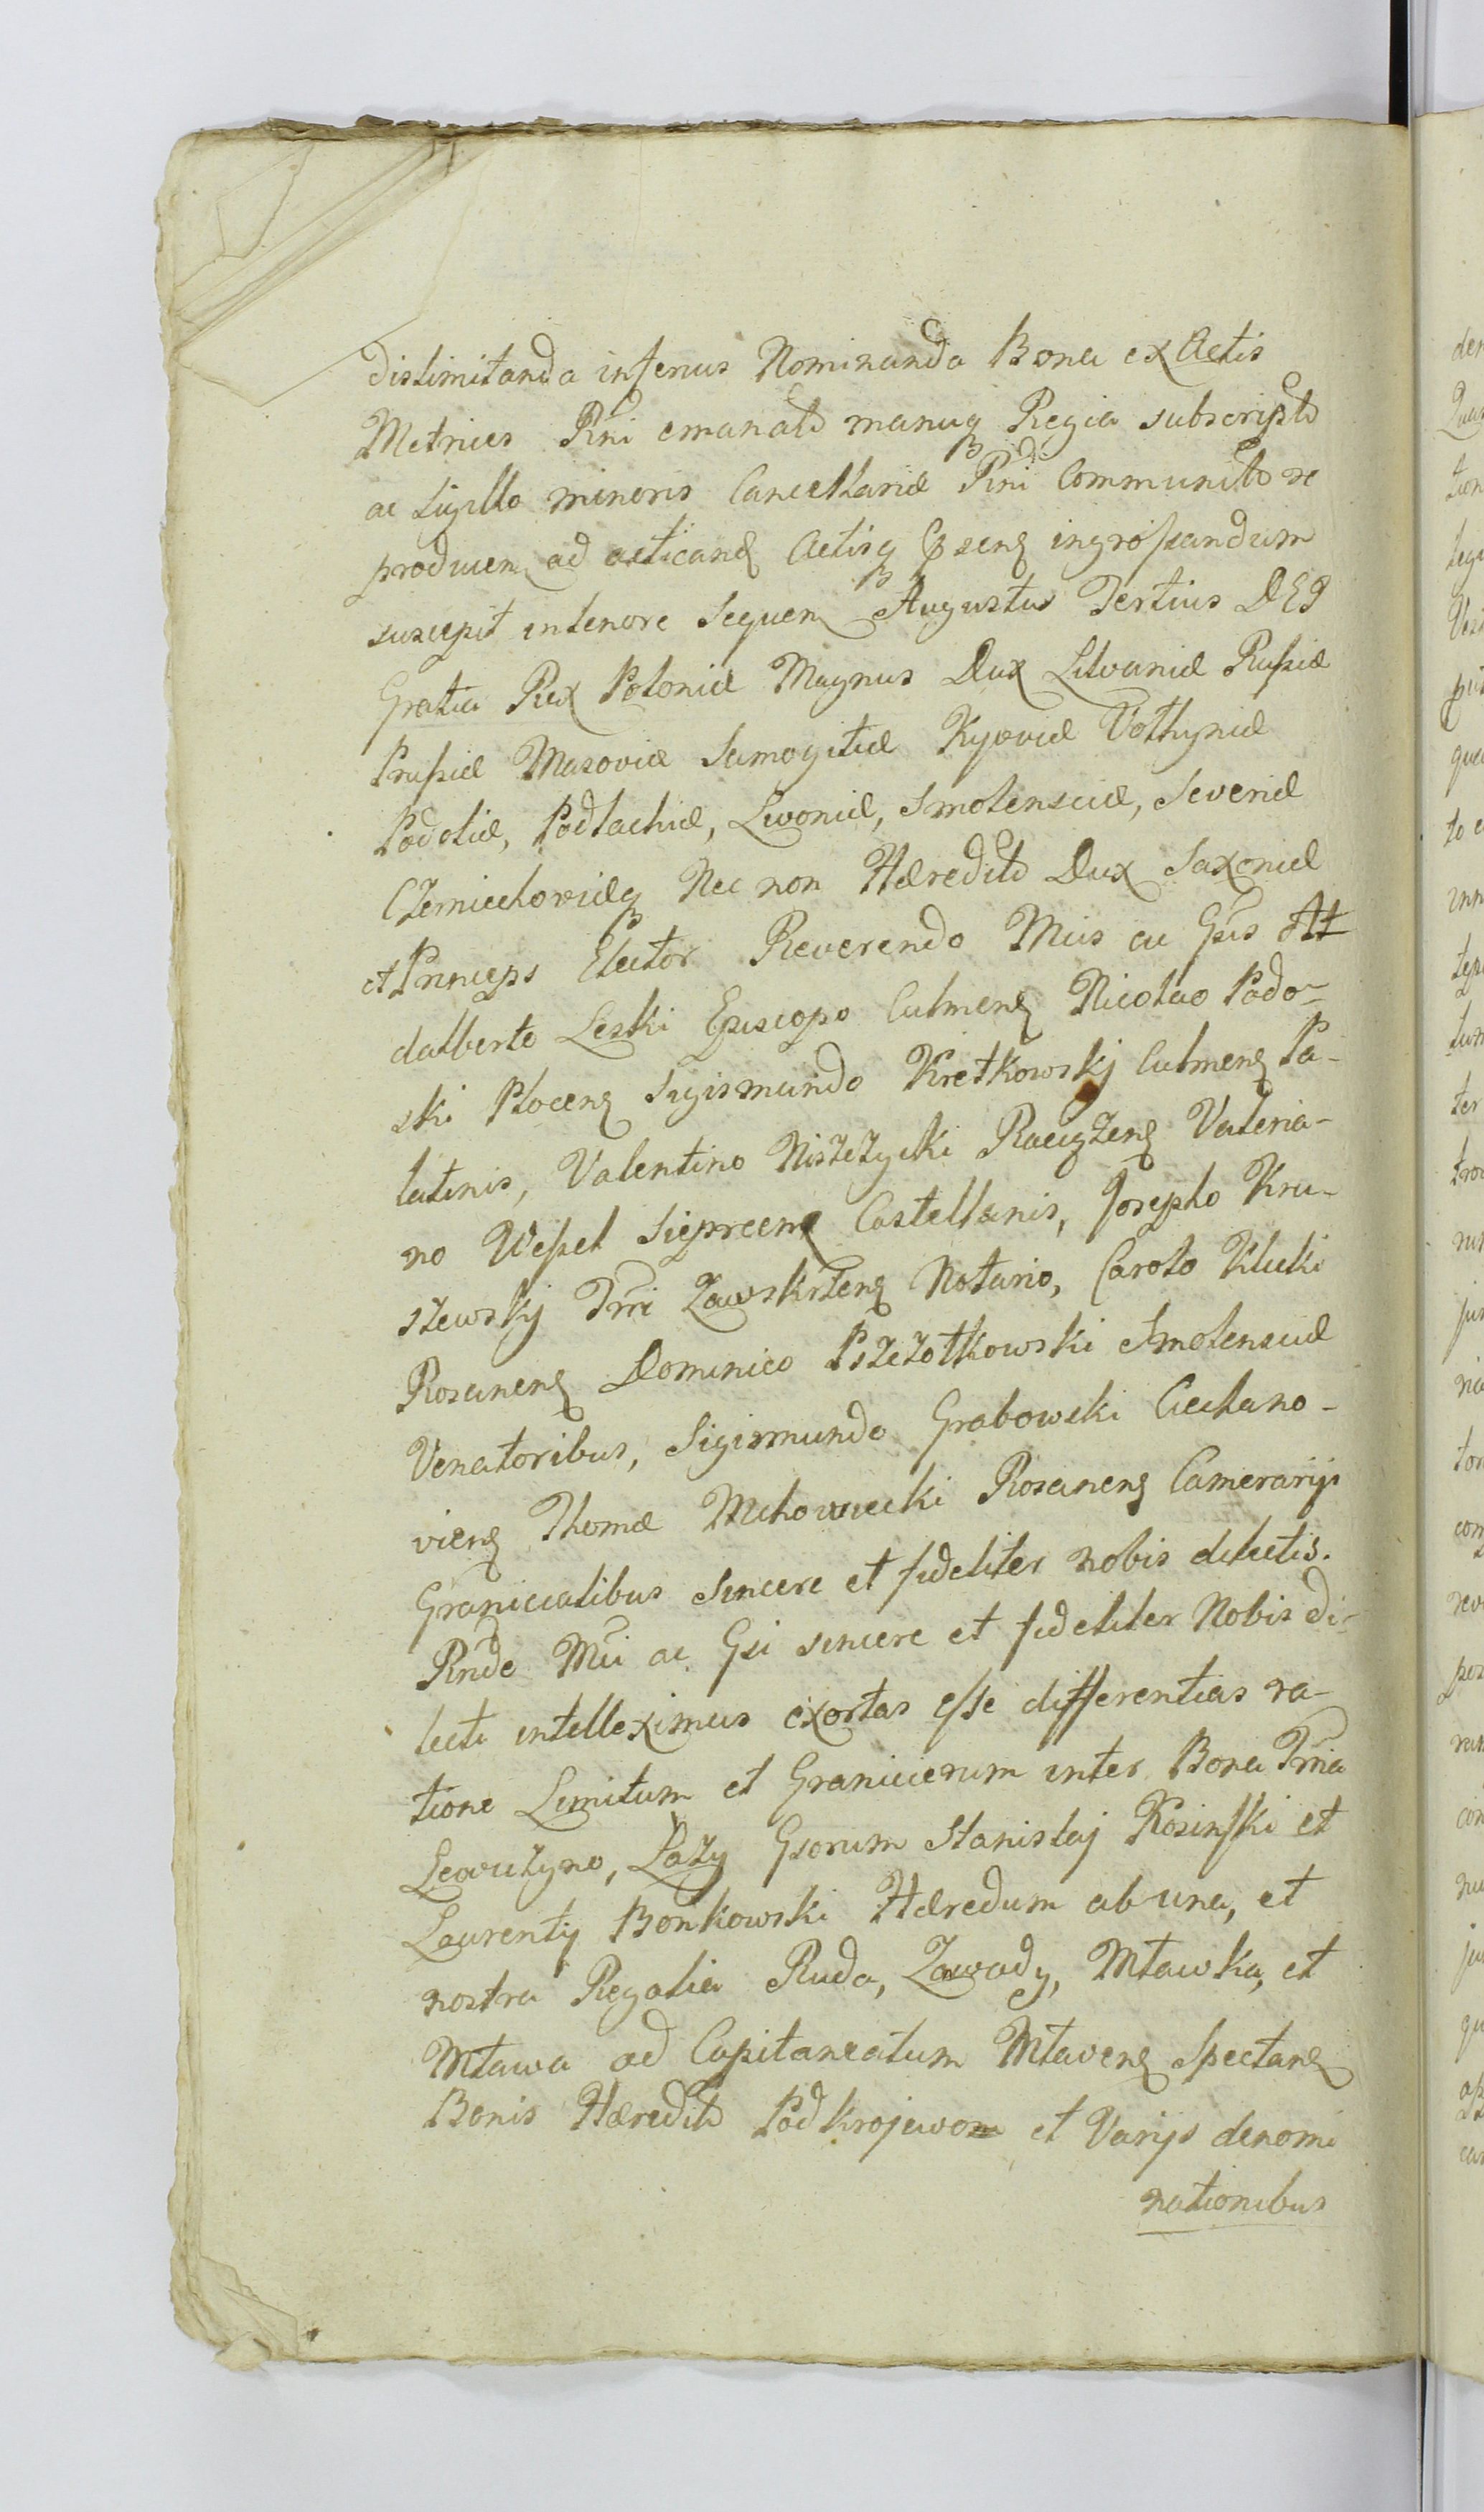 distimitanda inferius Nominanda Bona ex Actis
Metrices Rni emanatō manuq Regia subscriptō
ac Sigillo minoris Cancellariæ Rni Communitō re
producen ad acticand Actisq ꝑsenꝫ ingrossandum
suscepit in tenore Sequen Augustus Tertius DEI
Gratia Rex Poloniæ Magnus Dux Litvaniæ Russiæ
Prussiæ Masoviæ Samogitiæ Kyoviæ Volhyniæ
Podoliæ, Podlachiæ, Livoniæ, Smolensciæ, Severiæ
Czerniechoviæq Nec non Hæreditō Dux Saxoniæ
et Princeps Elector Reverendo Mcis ac Gsis At
dalberto Leski Episcopo Culmenꝫ Nicolao Podo-
ski Plocenꝫ Sigismundo Kretkowskj Culmenꝫ Pa-
latinis, Valentino Niszczycki Raciązenꝫ Valeria-
no Wessel Sieprcenꝫ Castellanis, Josepho Kru-
szewskj Trri Zawskrzenꝫ Notario, Carolo Klicki
Rosanenꝫ Dominico Pszczołkowski Smolensciæ
Venatoribus, Sigismundo Grabowski Ciechano-
vienꝫ Thomæ Mchowiecki Rosanenꝫ Camerarijs
Granicialibus Sincere et fideliter nobis dilectis.
Rnde Mci ac Gsi sincere et fideliter Nobis di-
lecti intelleximus exortas esse differentias ra-
tione Limitum et Granicierum inter Bona Trria
Lewiczyno, Łazy Gsorum Stanislaj Kosinski et
Laurentij Bonkowski Hæredum ab una, et
nostra Regalia Ruda, Zawady, Mławka, et
Mława ad Capitaneatum Mlavenꝫ Spectanꝫ
Bonis Hæreditō Podkrajewom et Varijs denomi
nationibus